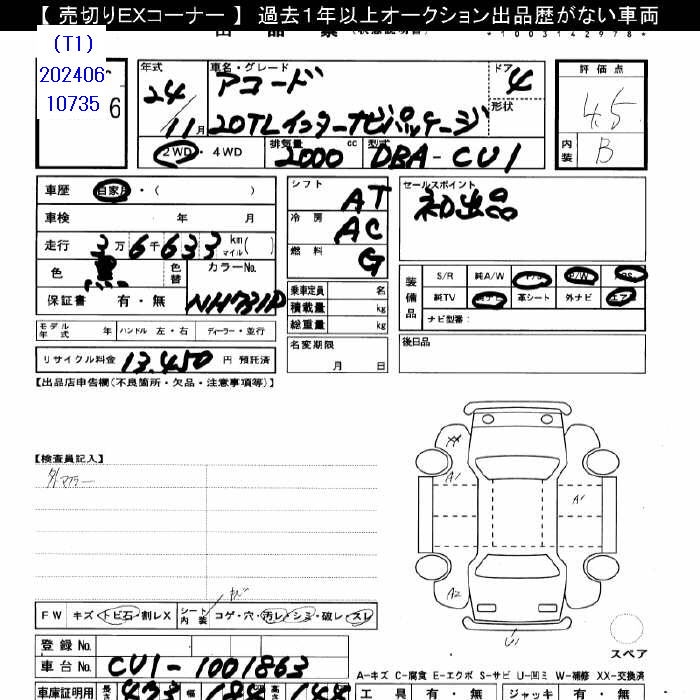 【 売切りEXコーナー 】 過去1年以上オークション出品歴がない車両
(T1)
202406-
10735
6
出 品 票
*1003142978*
年式
24
11月
車名・グレード
アコード
20TLインターナビパッケージ
ドア
4
形状
評価点
4.5
内装
B
2WD・4WD
排気量
2000 cc
型式
DBA-CU1
車歴 自家用・( )
車検 年 月
走行 3万6千633 km マイル( )
色 黒 色替 カラーNo.
保証書 有・無 NH731P
モデル年式 年 ハンドル 左・右 ディーラー・並行
リサイクル料金 13,450 円 預託済
シフト AT
冷房 AC
燃料 G
乗車定員 名
積載量 kg
総重量 kg
名変期限
月 日
セールスポイント
初出品
装備品
S/R 純A/W P/S P/W ABS
純TV 純ナビ 革シート 外ナビ エアB
ナビ型番:
後日品
【出品店申告欄(不良箇所・欠品・注意事項等)】
【検査員記入】
外マフラー
XX
A1
A1
A2
U1
スペア
FW キズ・トビ石・割レX シート内装 コゲ・穴・汚レ・シミ・破レ・スレ
登録 No.
車台 No. CU1-1001863
A-キズ C-腐食 E-エクボ S-サビ U-凹ミ W-補修 XX-交換済
車庫証明用 長さ 473 幅 184 高さ 144
工具 有・無 ジャッキ 有・無